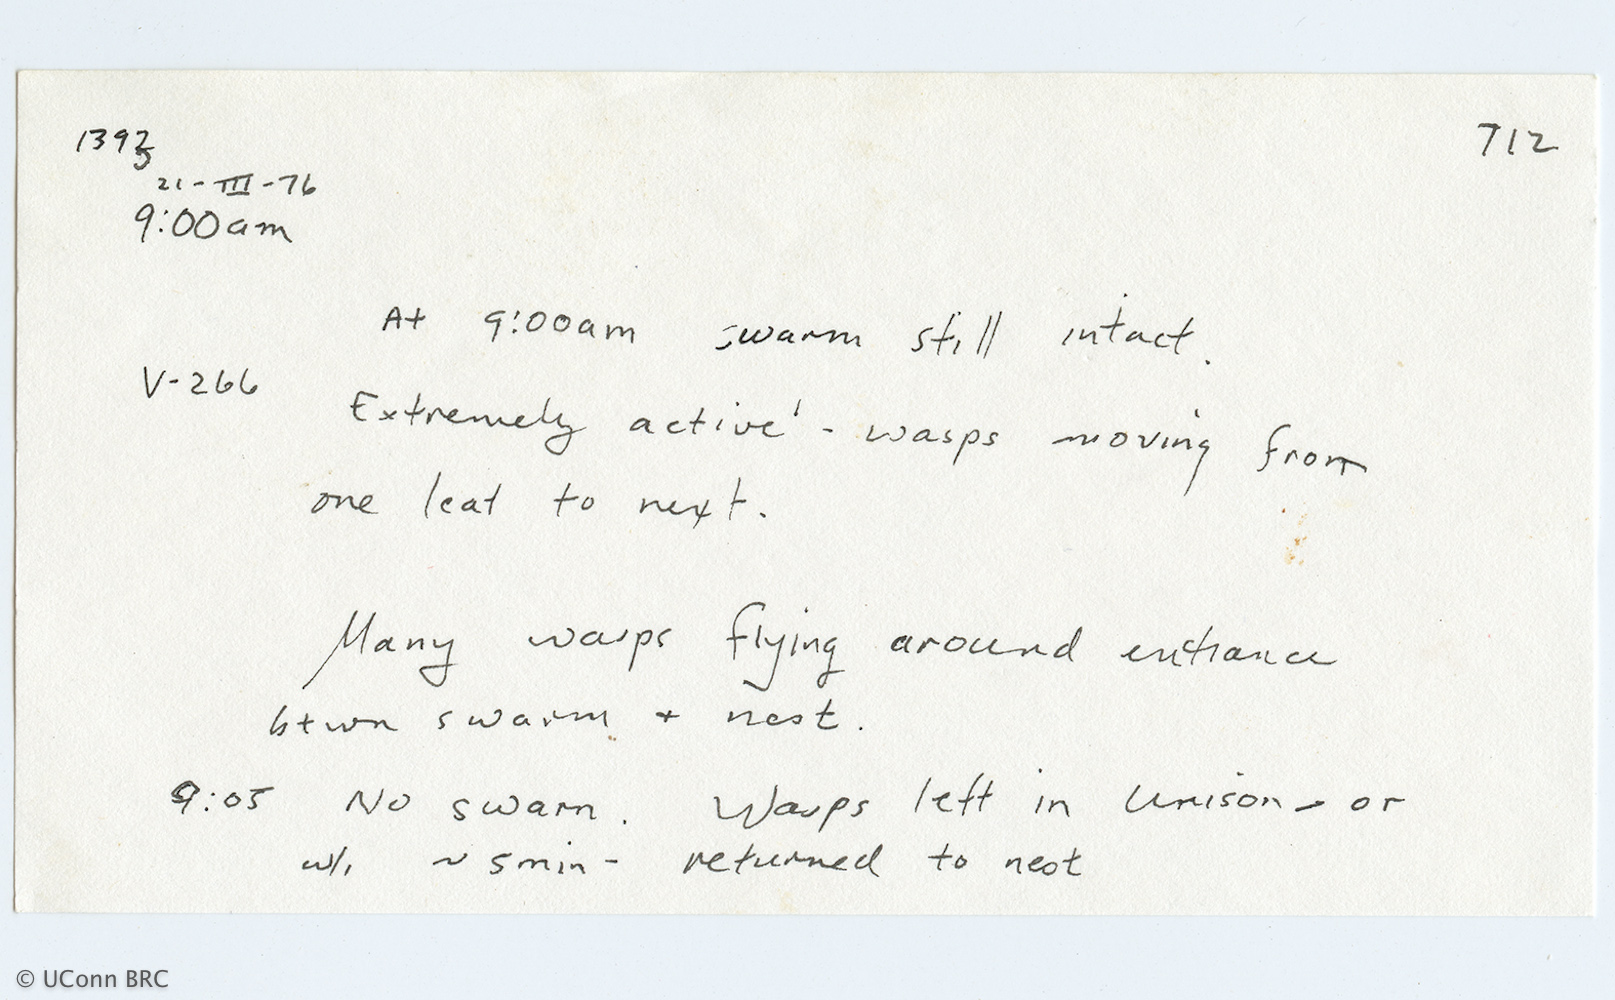 1393 712
21-III-76
9:00am
At 9:00am swarm still intact.
V-266
Extremely active! - wasps moving from
one leaf to next.
Many wasps flying around entrance
btwn swarm + nest.
9:05 No swarm. Wasps left in Unison - or
w/i ~ 5min - returned to nest
© UConn BRC